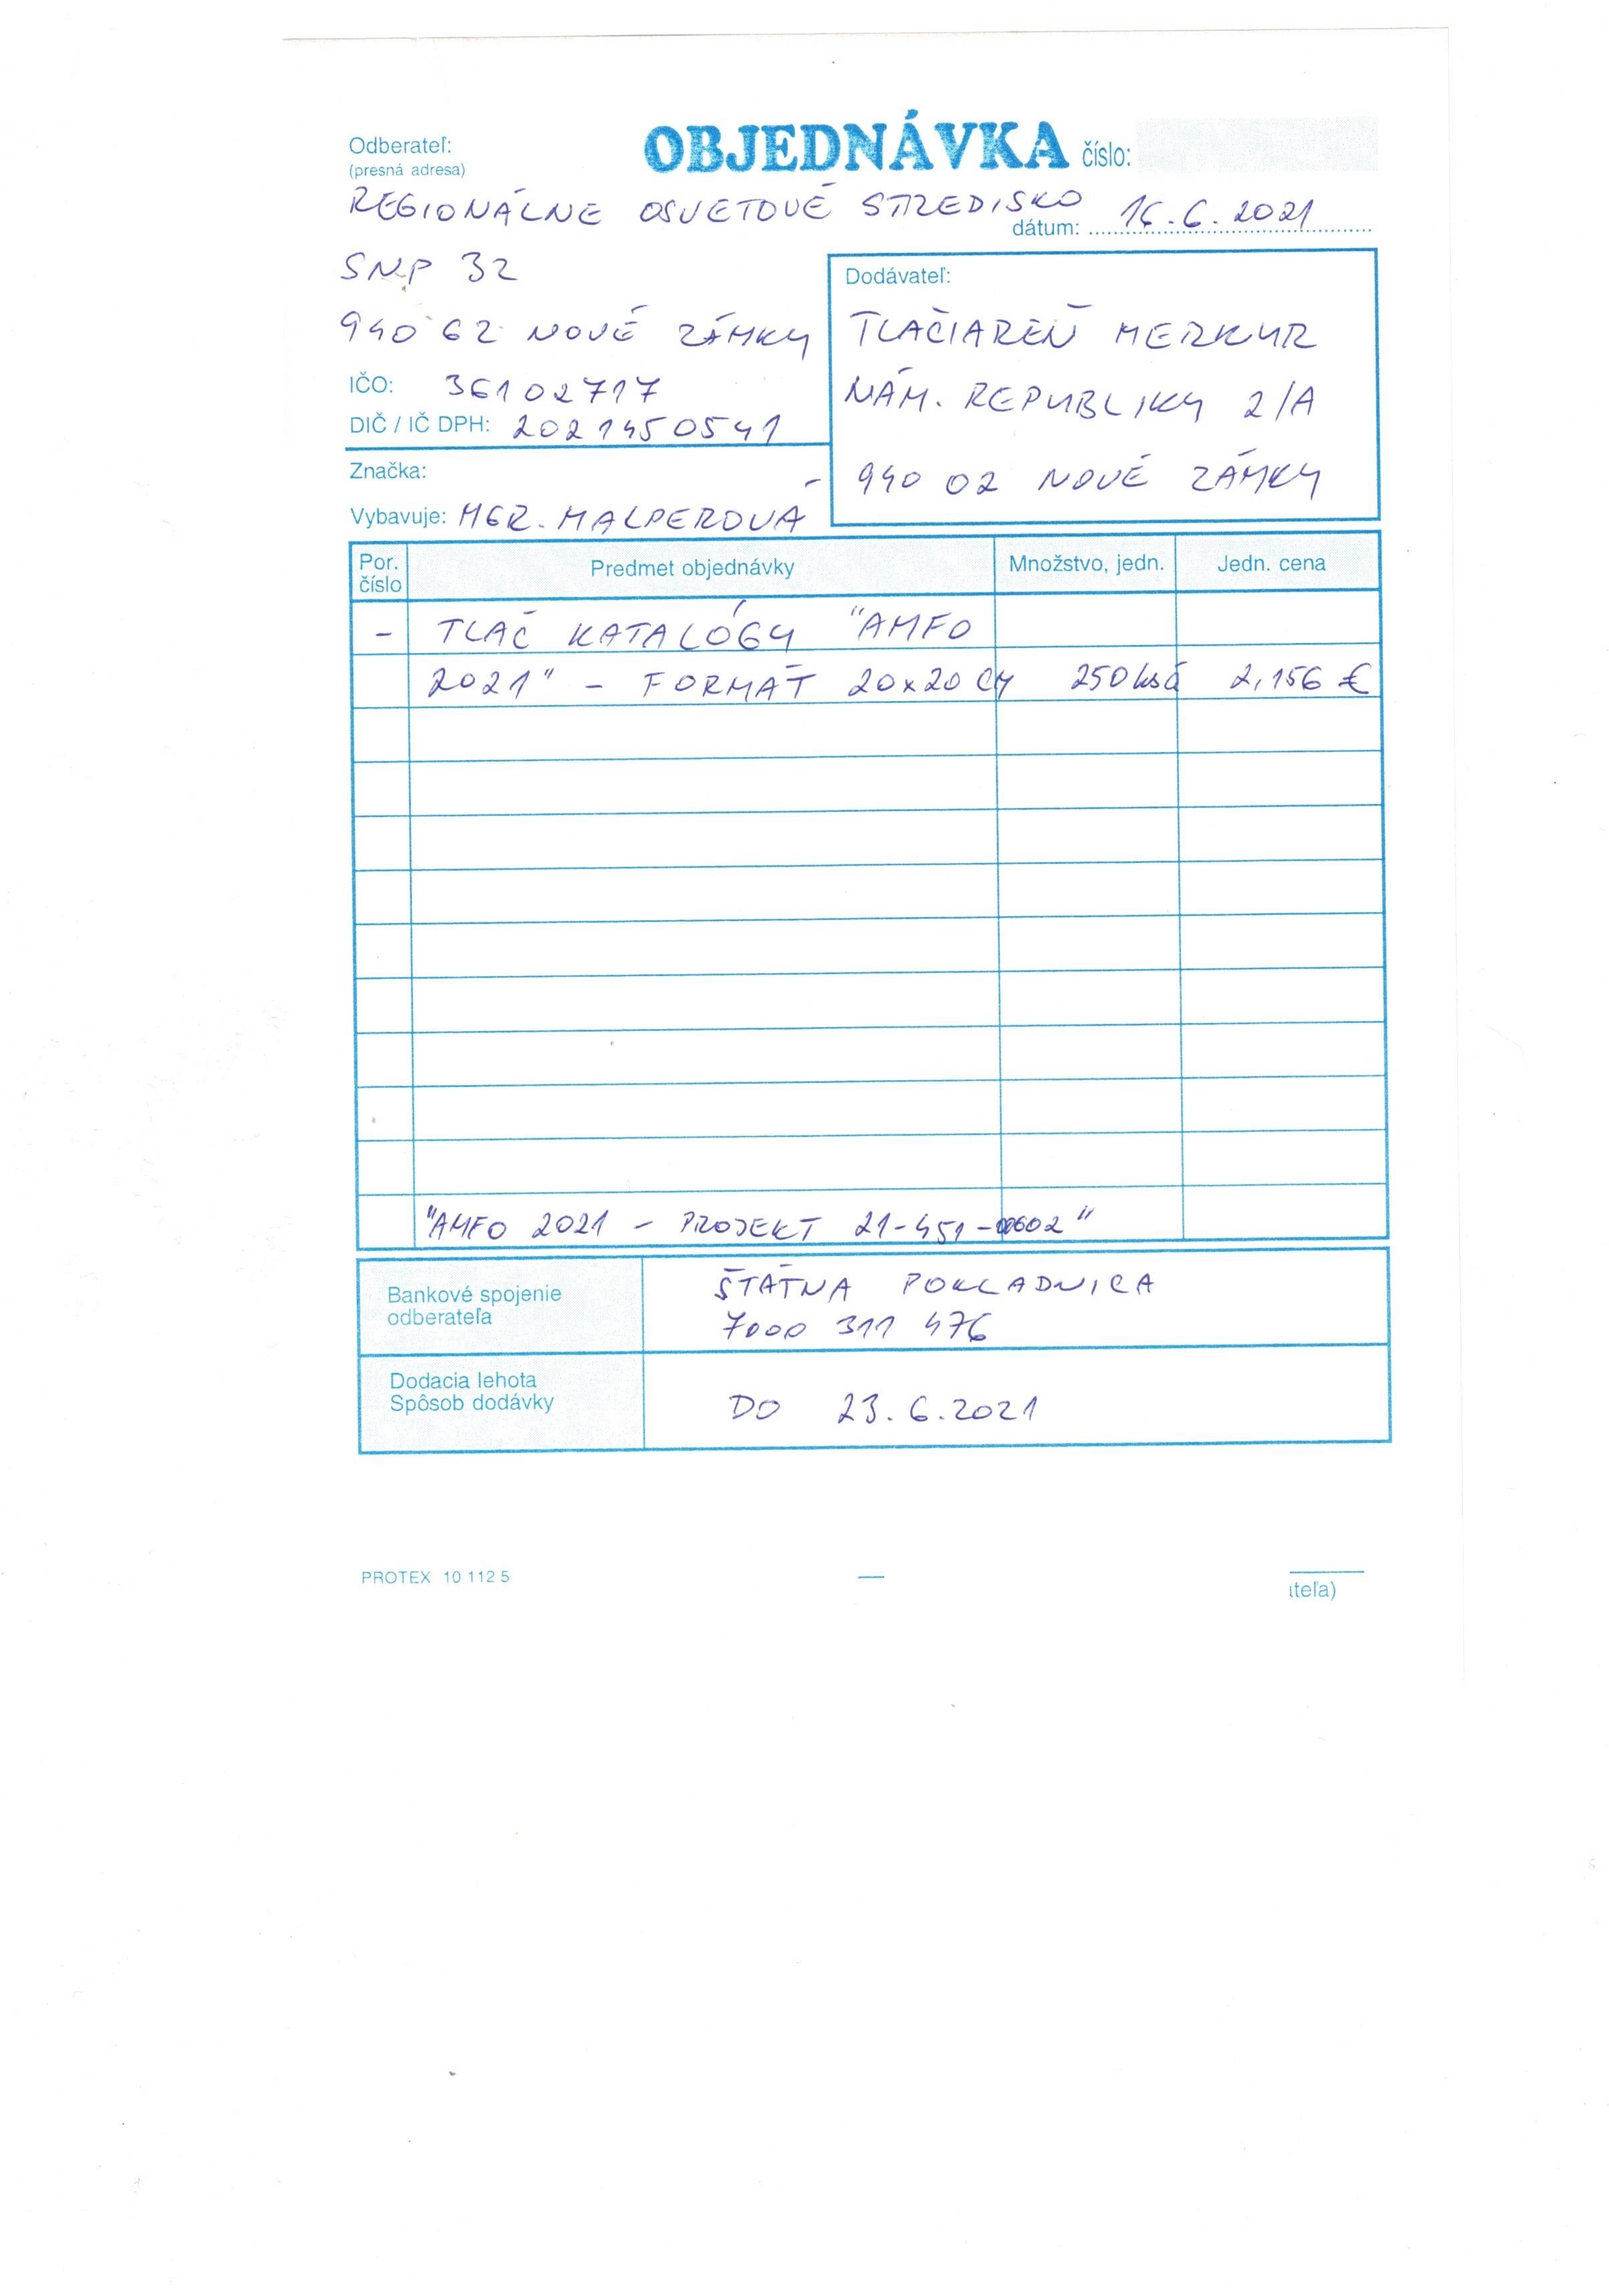 Odberateľ:
(presná adresa)
OBJEDNÁVKA číslo:
REGIONÁLNE OSVETOVÉ STREDISKO
dátum: 16.6.2021
SNP 32
940 62 NOVÉ ZÁMKY
IČO: 36102717
DIČ / IČ DPH: 2021450541
Značka:
Vybavuje: MGR. MALPEROVÁ
Dodávateľ:
TLAČIAREŇ MERKUR
NÁM. REPUBLIKY 2/A
940 02 NOVÉ ZÁMKY
Por. číslo Predmet objednávky Množstvo, jedn. Jedn. cena
- TLAČ KATALÓGY "AMFO
2021" - FORMÁT 20x20 CM 250 ks á 2,156 €
"AMFO 2021 - PROJEKT 21-451-00602"
Bankové spojenie
odberateľa
ŠTÁTNA POKLADNICA
7000 311 476
Dodacia lehota
Spôsob dodávky
DO 23.6.2021
PROTEX 10 112 5
ateľa)